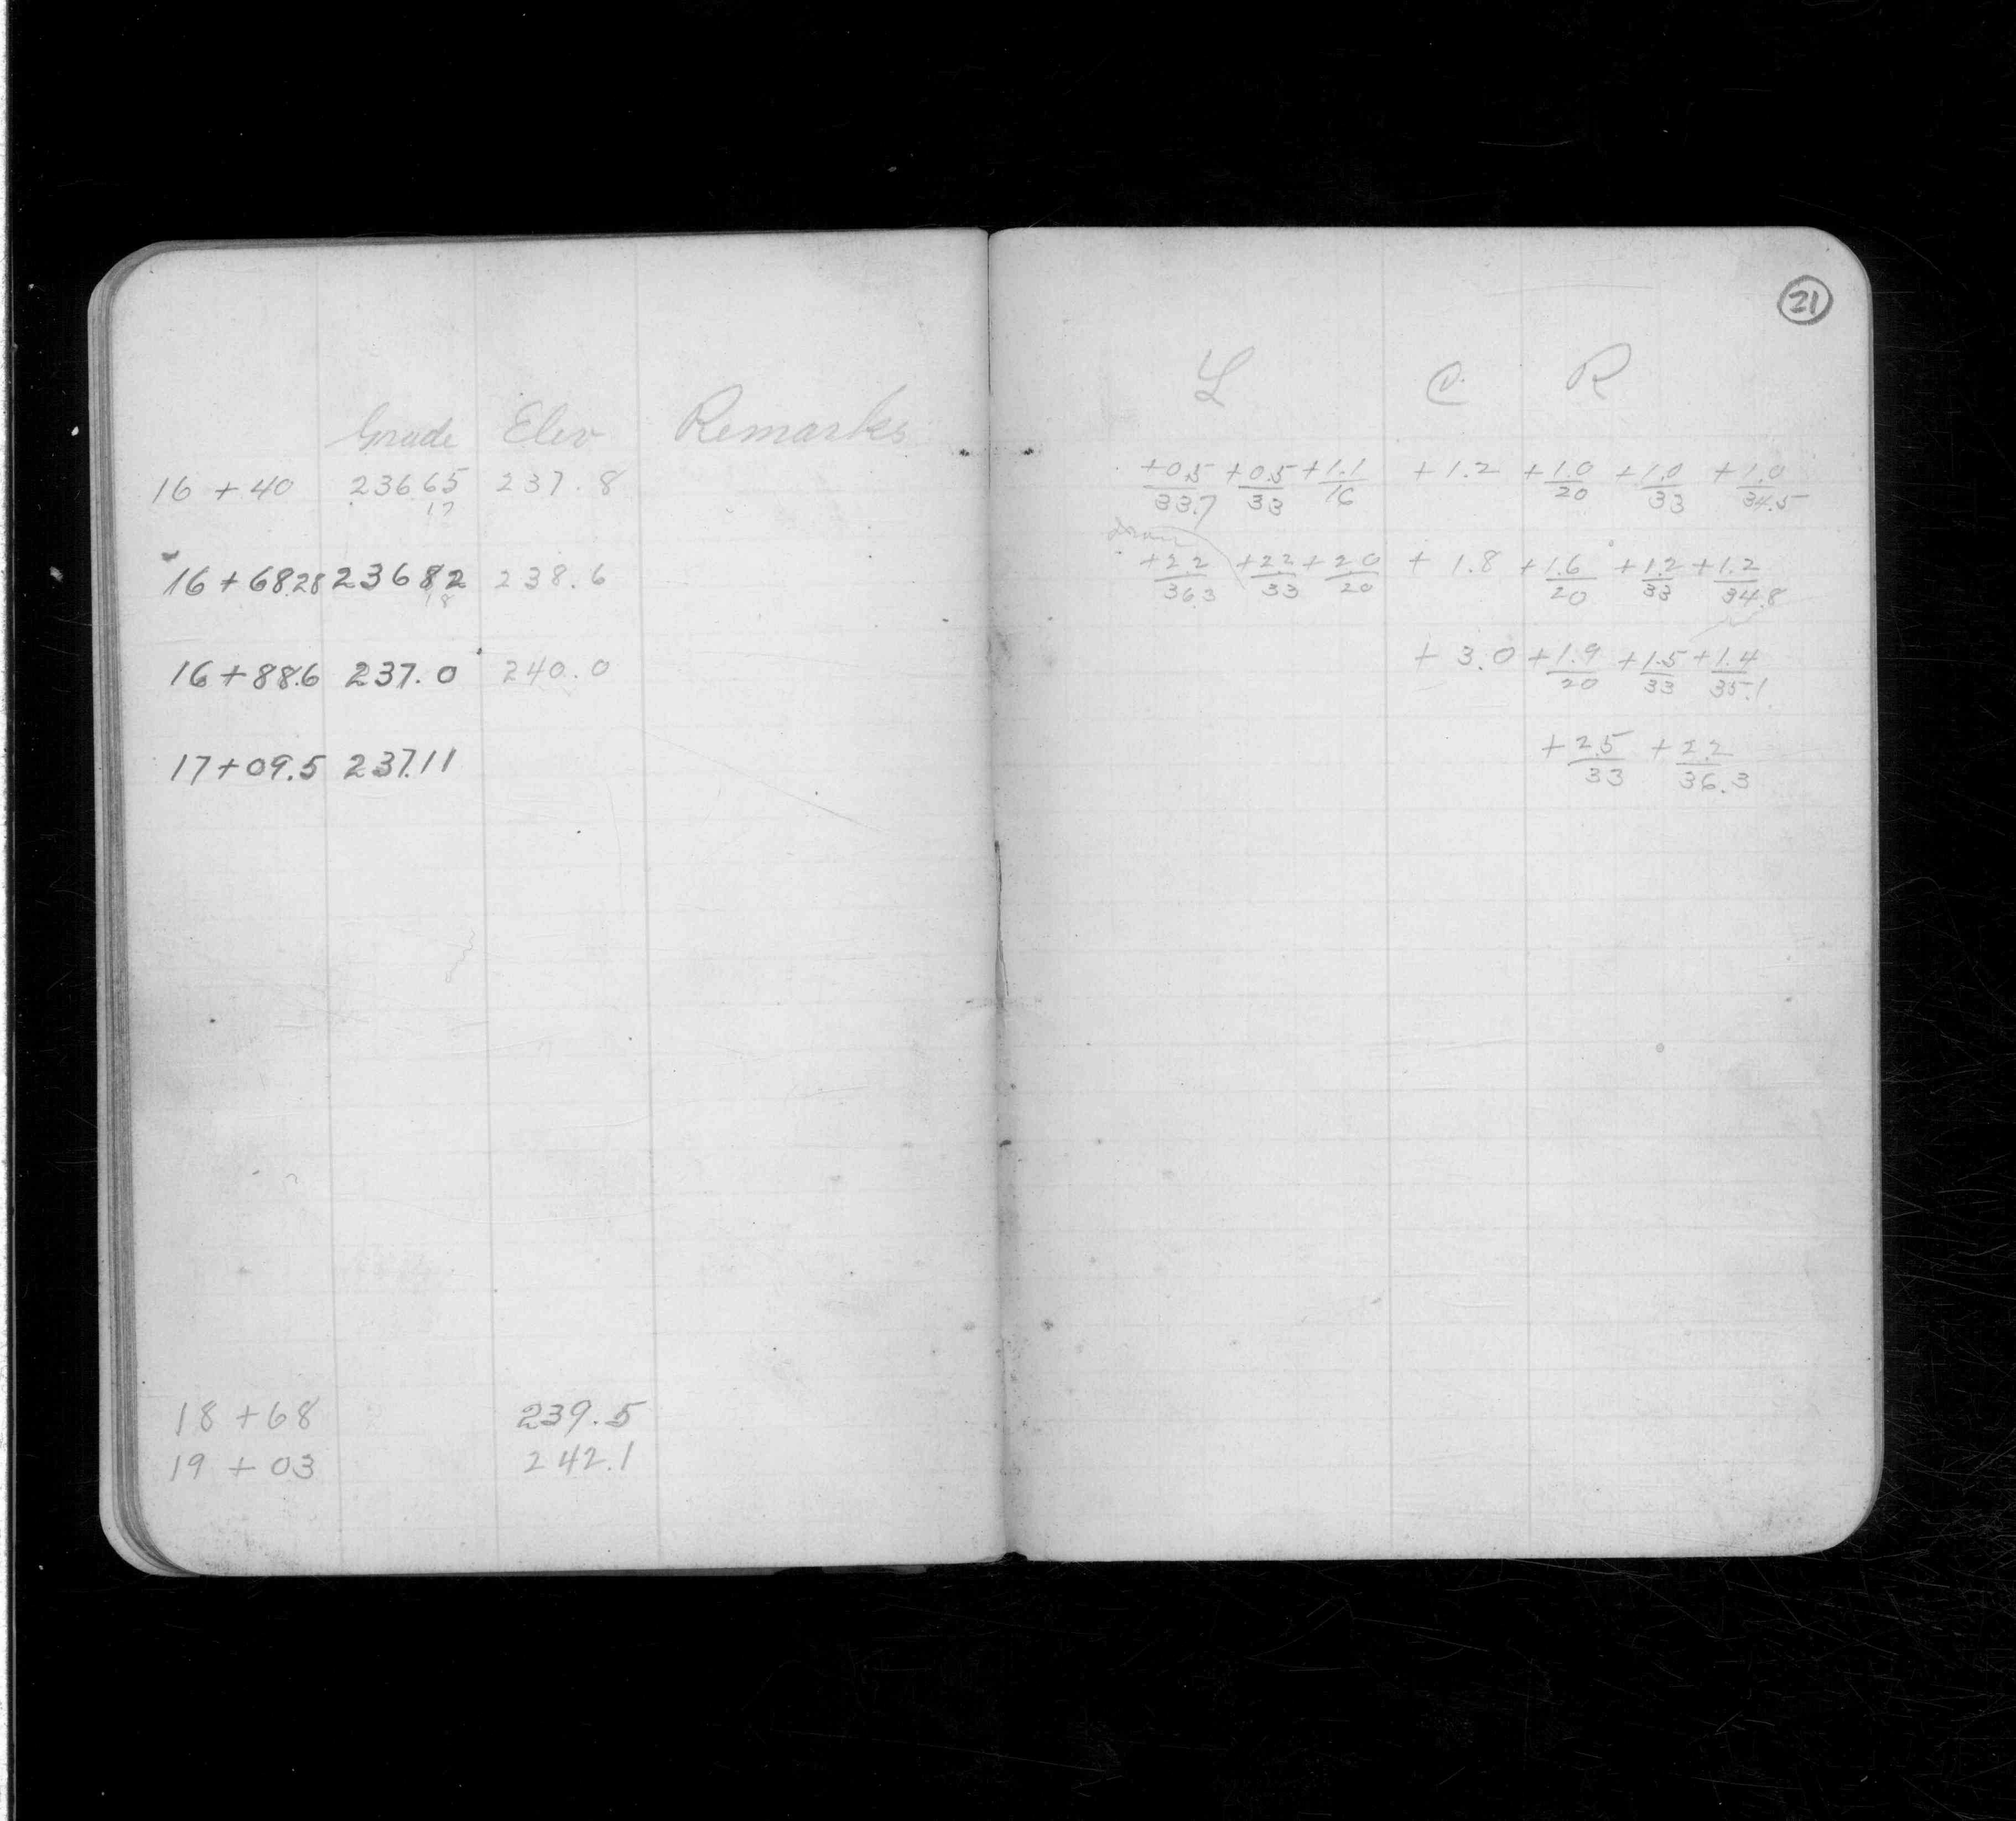 Grade Elev Remarks
16 + 40 236 65 237.8
17
16 + 68.28 236 82 238.6
18
16 + 88.6 237.0 240.0
17 + 09.5 237.11
18 + 68 239.5
19 + 03 242.1
21
L C R
+0.5/33.7 +0.5/33 +1.1/16 + 1.2 +1.0/20 +1.0/33 +1.0/34.5
+2.2/36.3 +2.2/33 +2.0/20 + 1.8 +1.6/20 +1.2/33 +1.2/34.8
+ 3.0 +1.9/20 +1.5/33 +1.4/35.1
+2.5/33 +2.2/36.3